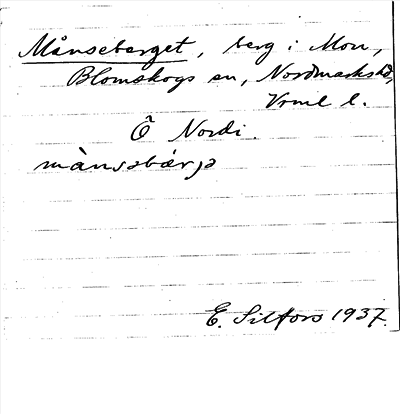 Månseberget, berg i Mon,
Blomskogs sn, Nordmarks hd,
Vrml l.
Ö Nordi.
mànsəbærjə
E. Silfors 1937.